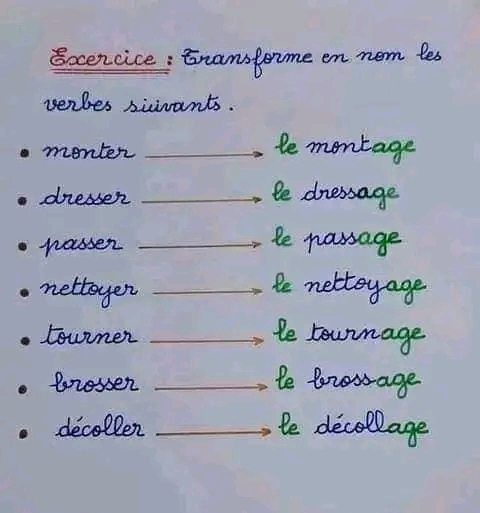 Exercice : Transforme en nom les
verbes suivants.
• monter → le montage
• dresser → le dressage
• passer → le passage
• nettoyer → le nettoyage
• tourner → le tournage
• brosser → le brossage
• décoller → le décollage